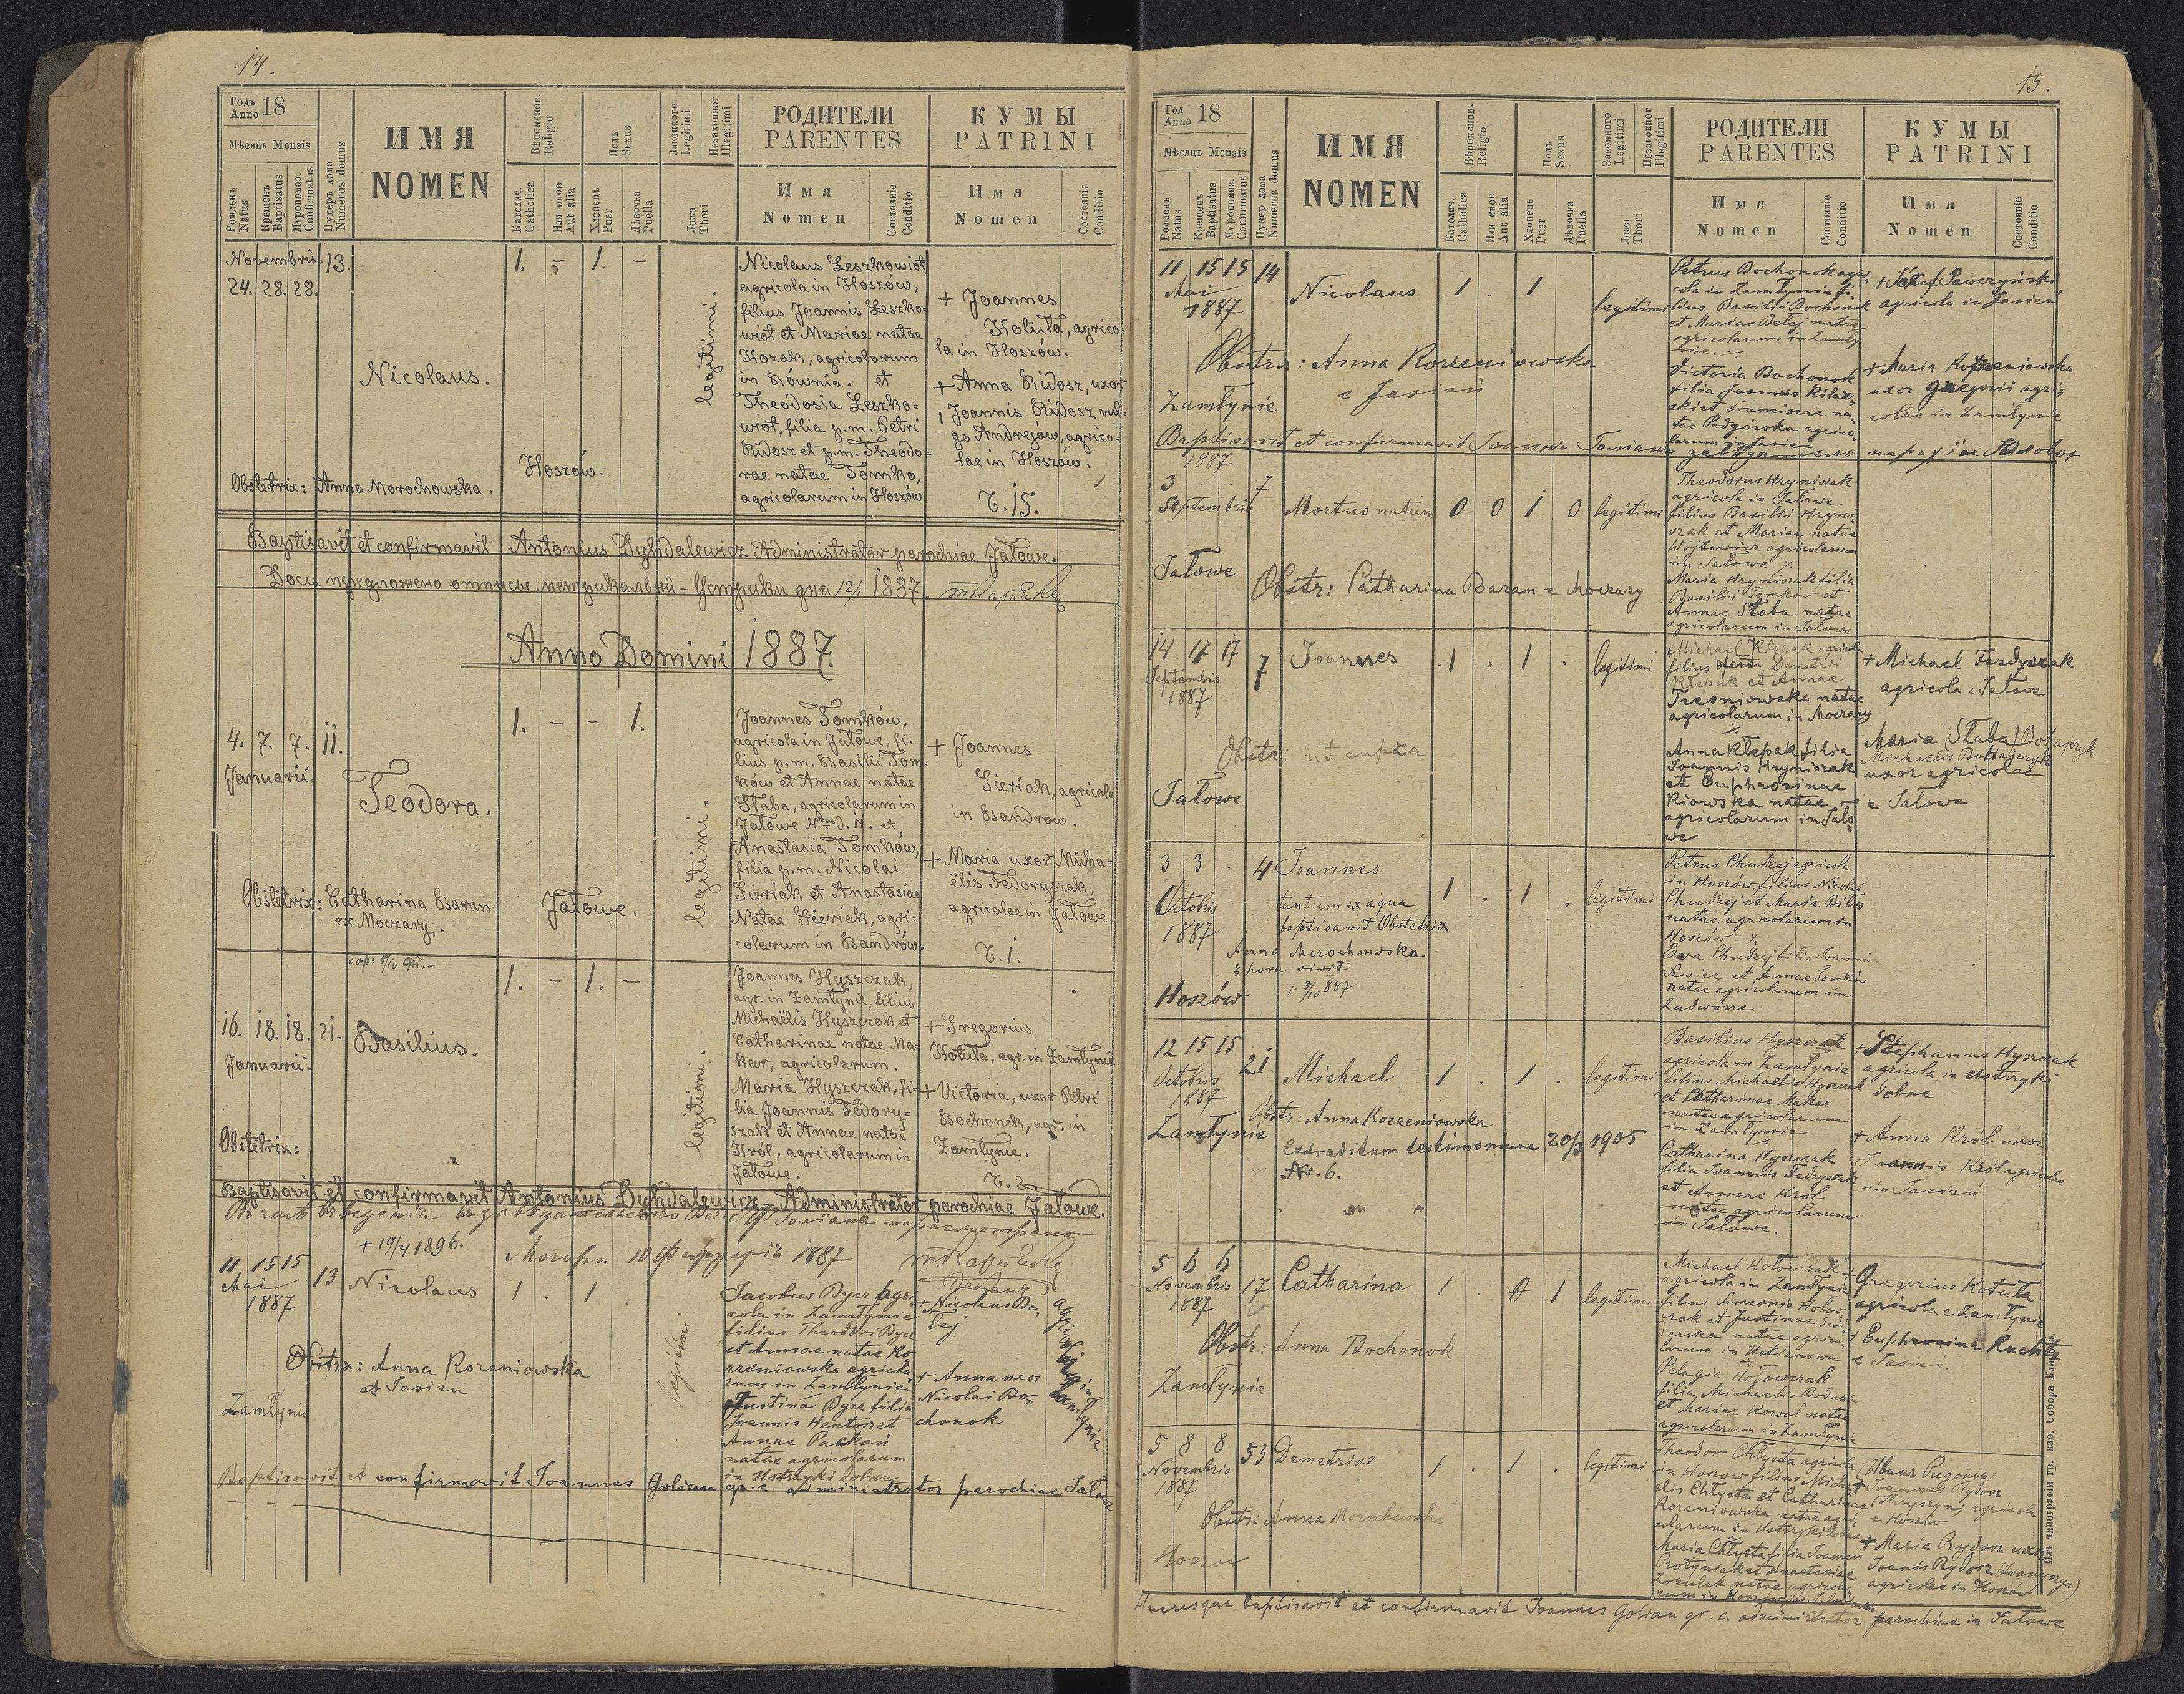 14.
Годъ Anno 18
Мѣсяць Mensis
Рожденъ Natus
Крещенъ Baptisatus
Муропомаз. Confirmatus
Нумеръ дома Numerus domus
ИМЯ
NOMEN
Вѣроиспов. Religio
Католич. Catholica
Или иное Aut alia
Полъ Sexus
Хлопецъ Puer
Дѣвочка Puella
Законного Legitimi
Незаконног Illegitimi
Ложа Thori
РОДИТЕЛИ
PARENTES
Имя Nomen
Состояніе Conditio
КУМЫ
PATRINI
Имя Nomen
Состояніе Conditio
Novembris. 13. 1. – 1. –
24. 28. 28.
Nicolaus.
legitimi.
Nicolaus Leszkowiot
agricola in Hoszów,
filius Joannis Leszko=
wiot et Mariae natae
Kozak, agricolarum
in Równia. et
Theodosia Leszko=
wiot, filia p.m. Petri
Ridosz et p.m. Theodo=
rae natae Tomko,
agricolarum in Hoszów.
+ Joannes
Kotuła, agrico=
la in Hoszów.
+ Anna Ridosz, uxor
Joannis Ridosz vul=
go Andrejów, agrico=
lae in Hoszów.
Hoszów.
Obstetrix: Anna Morochowska.
T. 15.
Baptisavit et confirmavit Antonius Dyhdalewicz Administrator parochiae Jałowe.
Досы предложено отписы метрикальнй – Устрики дня 12/1 1887.
Anno Domini 1887.
1. – – 1.
4. 7. 7. 11.
Januarii.
Teodora.
legitimi.
Joannes Tomków,
agricola in Jałowe, fi=
lius p.m. Basilii Tom=
ków et Annae natae
Słaba, agricolarum in
Jałowe Nrus d. 11. et
Anastasia Tomków,
filia p.m. Nicolai
Gieriak et Anastasiae
Natae Gieriak, agri=
colarum in Bandrów.
+ Joannes
Gieriak, agricola
in Bandrow.
+ Maria uxor Micha=
ëlis Fedoryszak,
agricolae in Jałowe.
Obstetrix: Catharina Baran
ex Moczary.
Jałowe.
T. 1.
1. – 1. –
16. 18. 18. 21.
Januarii.
Basilius.
legitimi.
Joannes Hyszczak,
agr. in Zamłynie, filius
Michaëlis Hyszczak et
Catharinae natae Ma=
kar, agricolarum.
Maria Hyszczak, fi=
lia Joannis Fedory=
szak et Annae natae
Król, agricolarum in
Jałowe.
+ Gregorius
Kotuła, agr. in Zamłynie.
+ Victoria, uxor Petri
Bochonek, agr. in
Zamłynie.
Obstetrix:
T. 2.
Baptisavit et confirmavit Antonius Dyhdalewicz – Administrator parochiae Jałowe.
+ 19/4 1896.
11 15 15 13 Nicolaus 1 . 1 .
Mai
1887
legitimi
Jacobus Dycz agri
cola in Zamłynie
filius Theodori Dycz
et Annae natae Ko
rzeniowska agricola
rum in Zamłynie.
Justina Dycz filia
Joannis Hentosz et
Annae Packań
natae agricolarum
in Ustrzyki dolne
+ Nicolaus Be,
lej
+ Anna uxor
Nicolai Bo=
chonok
agricolae in
Zamłynie
Obstrx: Anna Korzeniowska
et Jasien
Zamłynie
Baptisavit et confirmavit Joannes Golian gr. c. administrator parochiae Jałowe
15.
Год Anno 18
Мѣсяць Mensis
Рожденъ Natus
Крещенъ Baptisatus
Муропомаз. Confirmatus
Нумер дома Numerus domus
ИМЯ
NOMEN
Вѣроиспов. Religio
Католич. Catholica
Или иное Aut alia
Полъ Sexus
Хлопець Puer
Дѣвочка Puella
Законного Legitimi
Незаконног Illegitimi
Ложа Thori
РОДИТЕЛИ
PARENTES
Имя Nomen
Состояніе Conditio
КУМЫ
PATRINI
Имя Nomen
Состояніе Conditio
11 15 15 14 Nicolaus 1 . 1
Mai
1887
legitimi
Petrus Bochonok agri
cola in Zamłynie fi
lius Basilii Bochonok
et Mariae Belej natae
agricolarum in Zamły
nie.
Victoria Bochonok
filia Joannis Kilar
ski et Franciscae na
tae Podgórska agrico
larum in Jasien
+ Józef Sawczyński
agricola in Jasień
+ Maria Korzeniowska
uxor Gregorii agri
colae in Zamłynie
Obstrx: Anna Korzeniowska
e Jasień
Zamłynie
Baptisavit et confirmavit Joannes
1887
3 7
Septembris Mortuo natum 0 0 1 0 legitimi
Theodorus Hryniszak
agricola in Jałowe
filius Basilii Hryni
szak et Mariae natae
Wojtowicz agricolarum
in Jałowe
Maria Hryniszak filia
Basilii Tomków et
Annae Słaba natae
agricolarum in Jałowe
Jałowe
Obstr: Catharina Baran e Moczary
14 17 17 7 Joannes 1 . 1 . legitimi
Septembris
1887
Michael Klepak agricola
filius Demetrii
Klepak et Annae
Tresniowska natae
agricolarum in Moczary
Anna Klepak filia
Joannis Hryniszak
et Euphrosinae
Kiowska natae
agricolarum in Jało
we
+ Michael Ferdyszak
agricola e Jałowe
Maria Słaba
Michaelis
uxor agricolae
e Jałowe
Obstr: ut supra
Jałowe
3 3 . 4 Joannes 1 . 1 . legitimi
Octobris
1887
tantum ex aqua
baptisavit Obstetrix
Anna Morochowska
½ hora vivit
+ 3/10 887
Petrus Chudzej agricola
in Hoszów, filius Nicolai
Chudzej et Maria Bilas
natae agricolarum in
Hoszów
Ewa Chudzej filia Joannis
Szwiec et Annae Tomków
natae agricolarum in
Zadwórze
Hoszów
12 15 15 21 Michael 1 . 1 . legitimi
Octobris
1887
Basilius Hyszczak
agricola in Zamłynie
filius Michaelis Hyszczak
et Catharinae Makar
natae agricolarum
in Zamłynie
Catharina Hyszczak
filia Joannis Fedryszak
et Annae Król
natae agricolarum
in Jałowe.
+ Stephanus Hyszczak
agricola in Ustrzyki
dolne
+ Anna Król uxor
Joannis Król agricolae
in Jasień
Zamłynie
Obstr: Anna Korzeniowska
Extraditum testimonium 20/3 1905
Nr. 6.
5 6 6 17 Catharina 1 . 1 legitimi
Novembris
1887
Michael Hołowczak
agricola in Zamłynie
filius Simeonis Hołow
czak et Justinae Świ
derska natae agrico
larum in Ustianowa
Pelagia Hołowczak
filia Michaelis Bodnar
et Mariae Kowal natae
agricolarum in Zamłynie
+ Gregorius Kotuła
agricola e Zamłynie
+ Euphrosina Ruchta
e Jasień.
Obstr: Anna Bochonok
Zamłynie
5 8 8 53 Demetrius 1 . 1 . legitimi
Novembris
1887
Theodor Chłysta agricola
in Hoszow filius Micha
elis Chłysta et Catharinae
Korzeniowska natae agri
colarum in Ustrzyki dolne
Maria Chłysta filia Joannis
Protyniak et Anastasiae
natae agricola
rum in Hoszów
+ Joannes Rydosz
agricola
e Hoszów
+ Maria Rydosz uxor
Joanis Rydosz
agricolae in Hoszów
Obstr: Anna Morochowska
Hoszów
Hucusque baptisavit et confirmavit Joannes Golian gr. c. administrator parochiae in Jałowe
Изъ типографіи гр. кае. Собора Клира.